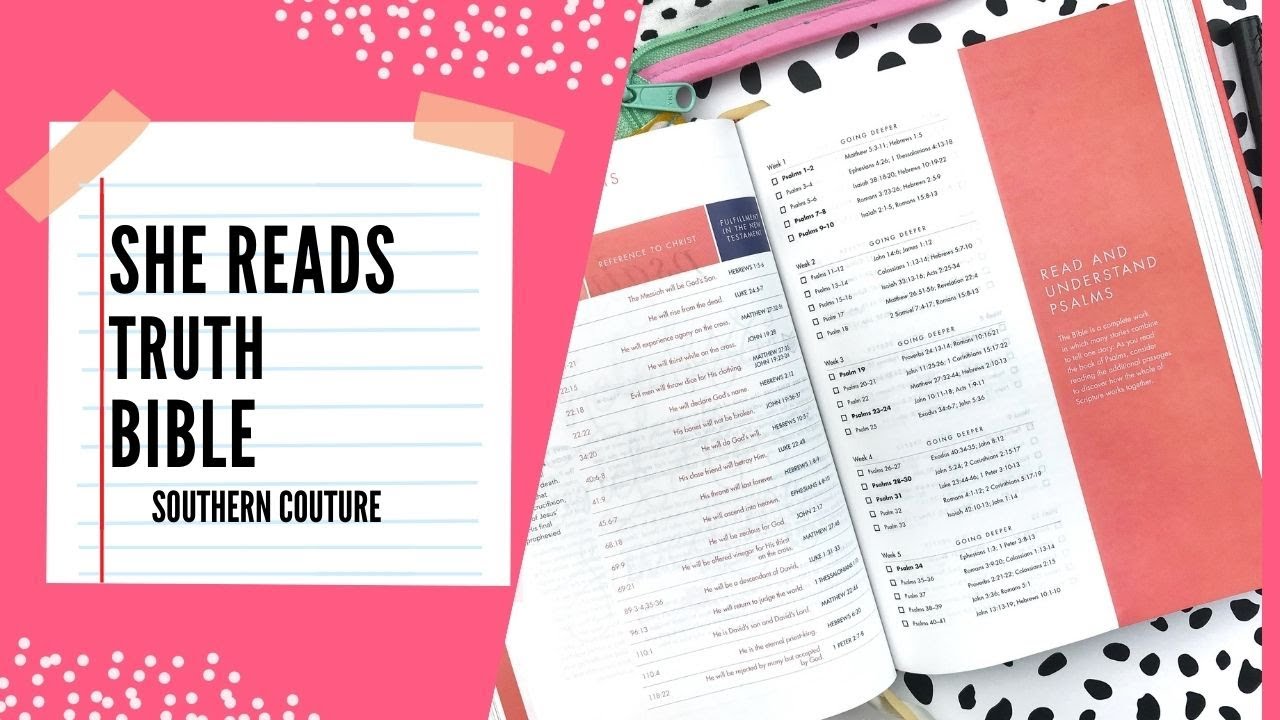 SHE READS
TRUTH
BIBLE
SOUTHERN COUTURE
REFERENCE TO CHRIST
FULFILLMENT
IN THE NEW
TESTAMENT
The Messiah will be God's Son. HEBREWS 1:5-6
He will rise from the dead. LUKE 24:5-7
He will experience agony on the cross.
22:15 He will thirst while on the cross. JOHN 19:28
22:18 Evil men will throw dice for his clothing. MATTHEW 27:35
JOHN 19:23-24
22:22 He will declare God's name. HEBREWS 2:12
34:20 His bones will not be broken. JOHN 19:36-37
40:6-8 He will do God's will. HEBREWS 10:5-7
41:9 His close friend will betray Him. LUKE 22:48
45:6-7 His throne will last forever. HEBREWS 1:8-9
68:18 He will ascend into heaven. EPHESIANS 4:8-10
69:9 He will be zealous for God. JOHN 2:17
69:21 He will be offered vinegar for His thirst
on the cross. MATTHEW 27:48
89:3-4,35-36 He will be a descendant of David. LUKE 1:31-33
96:13 He will return to judge the world. 1 THESSALONIANS
110:1 He is David's son and David's Lord. MATTHEW 22:44
110:4 He is the eternal priest-king. HEBREWS 6:20
118:22 He will be rejected by many but accepted
by God. 1 PETER 2:7-8
Week 1 GOING DEEPER
Psalms 1–2 Matthew 5:3-11; Hebrews 1:5
Psalms 3–4 Ephesians 4:26; 1 Thessalonians 4:13-18
Psalms 5–6 Isaiah 38:18-20; Hebrews 10:19-22
Psalms 7–8 Romans 3:23-26; Hebrews 2:5-9
Psalms 9–10 Isaiah 2:1-5, Romans 15:8-13
Week 2 GOING DEEPER
Psalms 11–12 John 14:6; James 1:12
Psalms 13–14 Colossians 1:13-14; Hebrews 5:7-10
Psalms 15–16 Isaiah 33:13-16; Acts 2:25-34
Psalm 17 Matthew 26:51-56; Revelation 22:4
Psalm 18 2 Samuel 7:4-17; Romans 15:8-13
Week 3 GOING DEEPER
Psalm 19 Proverbs 24:13-14; Romans 10:16-21
Psalms 20–21 John 11:25-26; 1 Corinthians 15:17-22
Psalm 22 Matthew 27:32-44; Hebrews 2:10-13
Psalms 23–24 John 10:11-18; Acts 1:9-11
Psalm 25 Exodus 34:6-7; John 5:36
Week 4 GOING DEEPER
Psalms 26–27 Exodus 40:34-35; John 8:12
Psalms 28–30 John 5:24; 2 Corinthians 2:15-17
Psalm 31 Luke 23:44-46; 1 Peter 3:10-13
Psalm 32 Romans 4:1-12; 2 Corinthians 5:17-19
Psalm 33 Isaiah 42:10-13; John 1:14
Week 5 GOING DEEPER
Psalm 34 Ephesians 1:3; 1 Peter 3:8-13
Psalms 35–36 Romans 3:9-20; Colossians 1:13-14
Psalm 37 Proverbs 2:21-22; Colossians 2:15
Psalms 38–39 John 3:36; Romans 5:1
Psalms 40–41 John 13:13-19; Hebrews 10:1-10
READ AND
UNDERSTAND
PSALMS
The Bible is a complete work
in which many stories combine
to tell one story. As you read
the book of Psalms, consider
reading the additional passages
to discover how the whole of
Scripture works together.